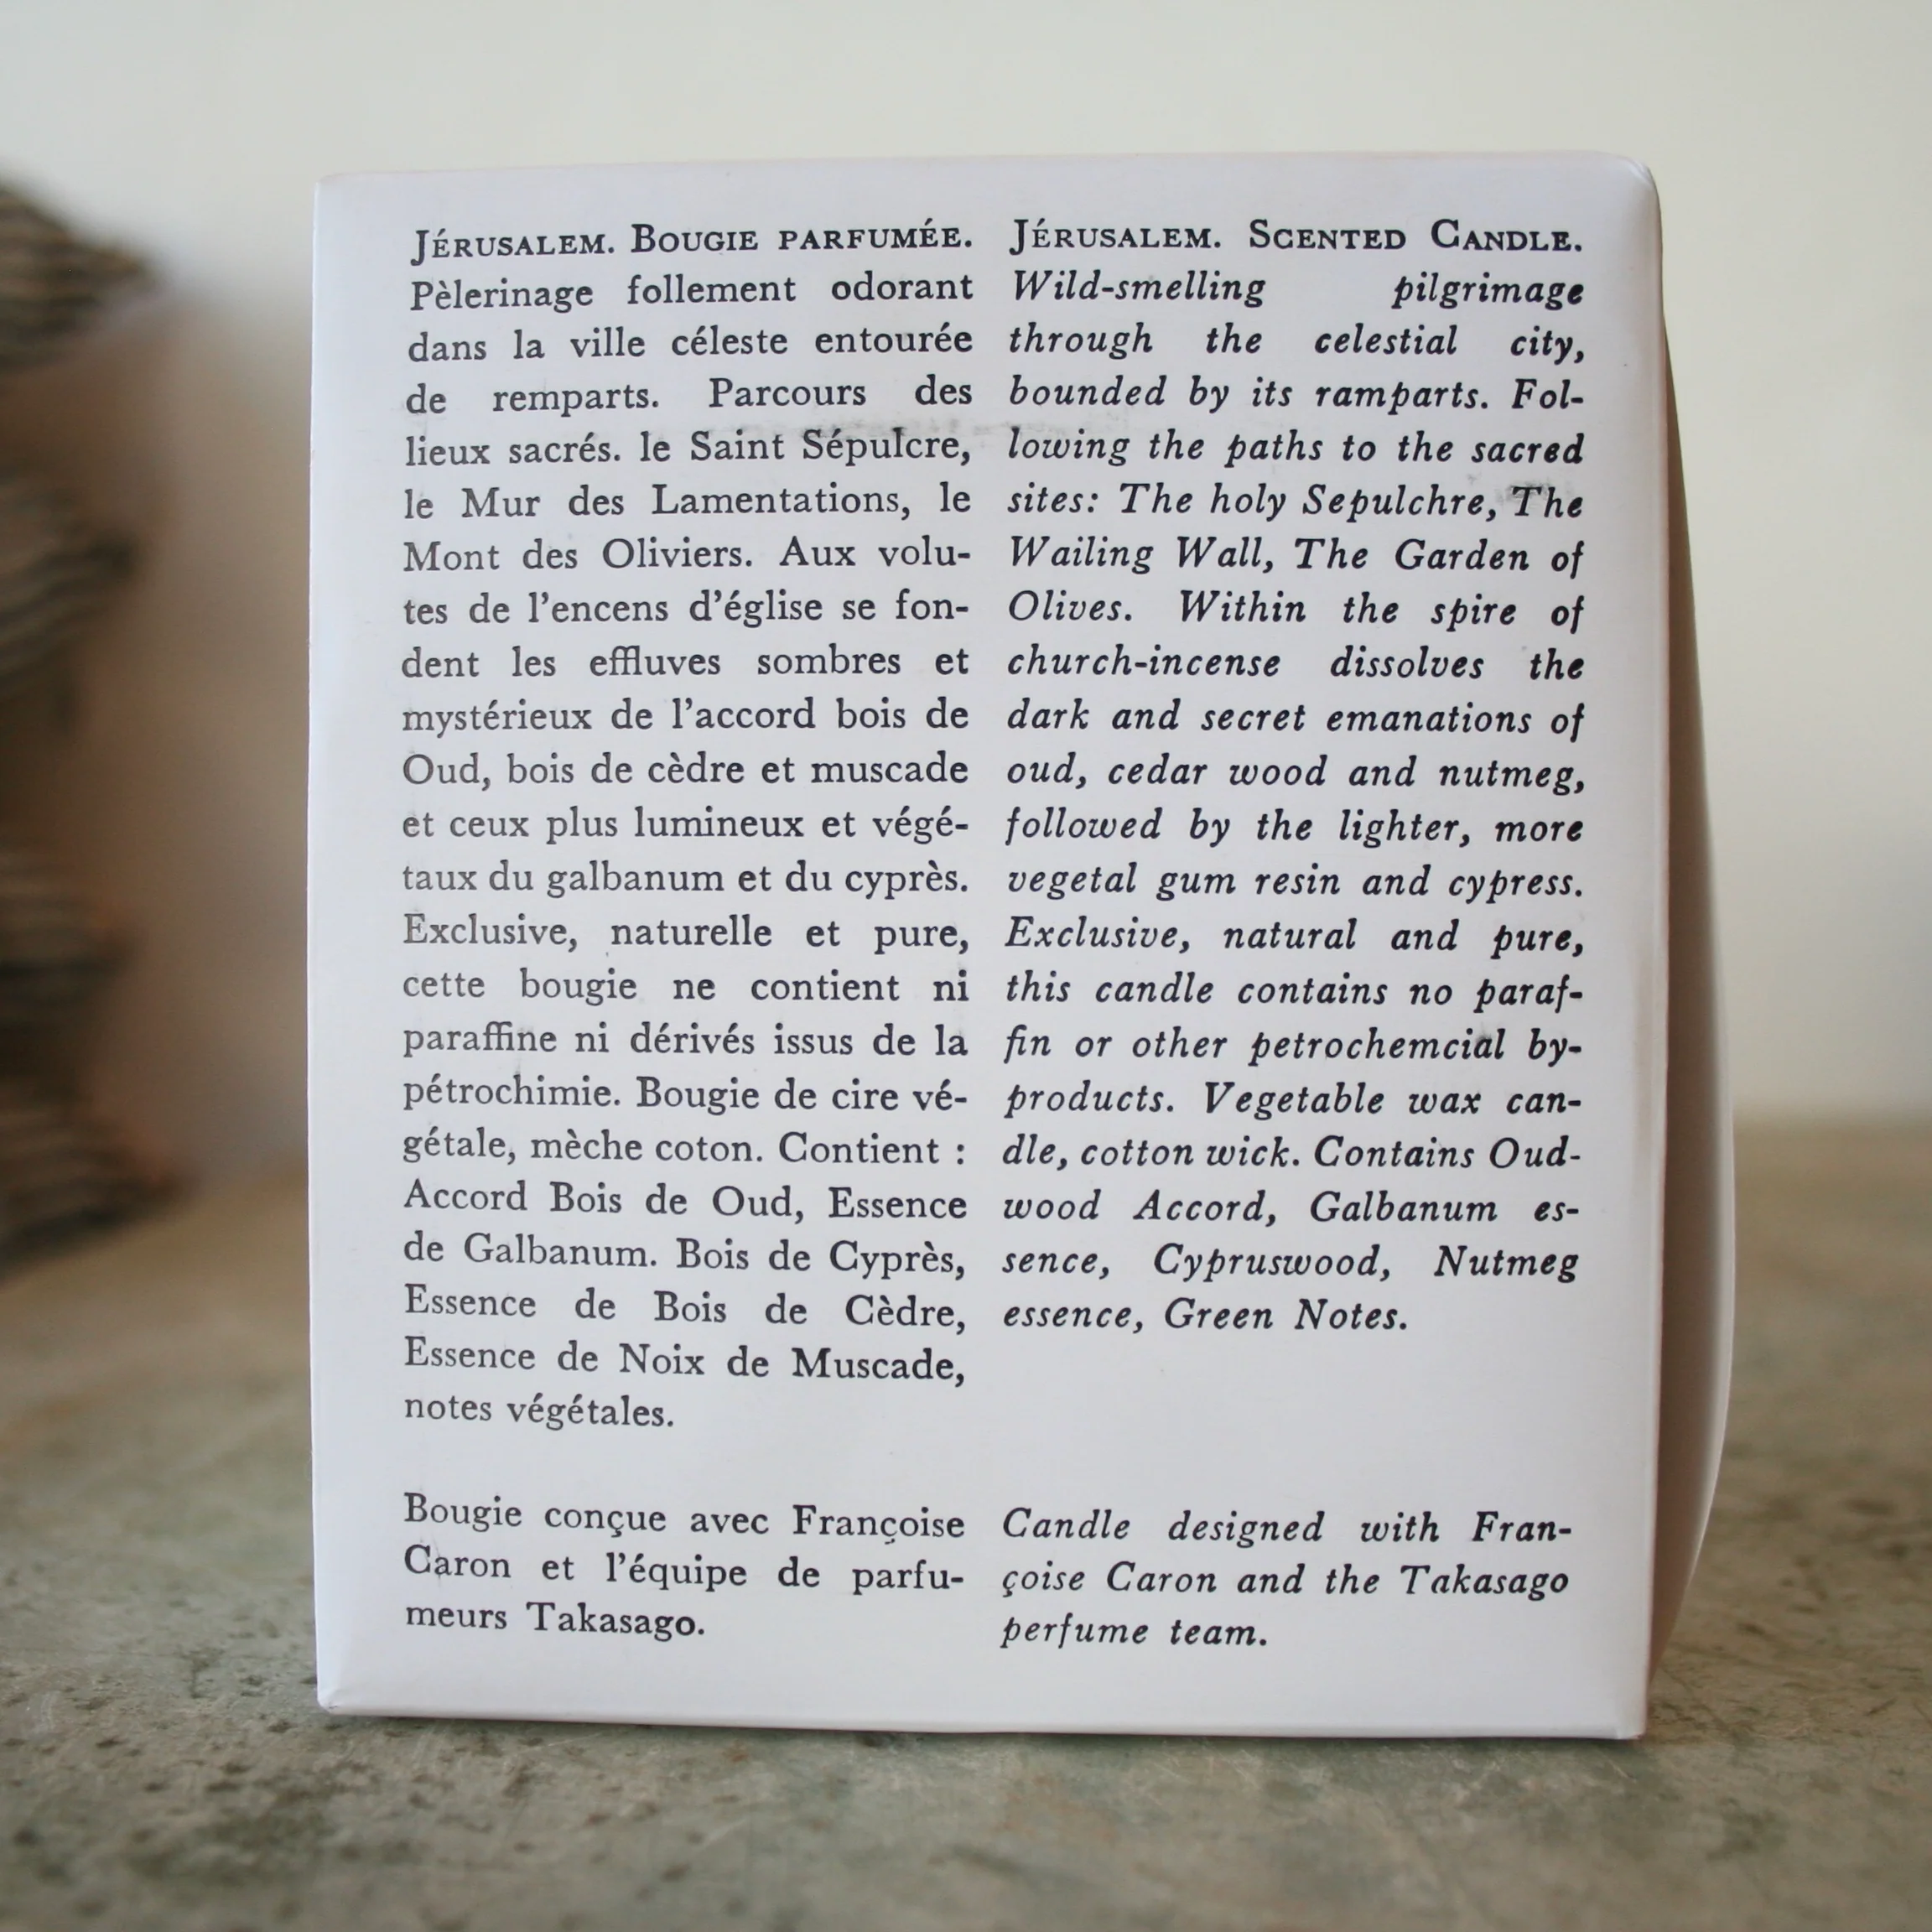 JÉRUSALEM. BOUGIE PARFUMÉE.
Pèlerinage follement odorant
dans la ville céleste entourée
de remparts. Parcours des
lieux sacrés. le Saint Sépulcre,
le Mur des Lamentations, le
Mont des Oliviers. Aux volu-
tes de l'encens d'église se fon-
dent les effluves sombres et
mystérieux de l'accord bois de
Oud, bois de cèdre et muscade
et ceux plus lumineux et végé-
taux du galbanum et du cyprès.
Exclusive, naturelle et pure,
cette bougie ne contient ni
paraffine ni dérivés issus de la
pétrochimie. Bougie de cire vé-
gétale, mèche coton. Contient :
Accord Bois de Oud, Essence
de Galbanum. Bois de Cyprès,
Essence de Bois de Cèdre,
Essence de Noix de Muscade,
notes végétales.
Bougie conçue avec Françoise
Caron et l'équipe de parfu-
meurs Takasago.
JÉRUSALEM. SCENTED CANDLE.
Wild-smelling pilgrimage
through the celestial city,
bounded by its ramparts. Fol-
lowing the paths to the sacred
sites: The holy Sepulchre, The
Wailing Wall, The Garden of
Olives. Within the spire of
church-incense dissolves the
dark and secret emanations of
oud, cedar wood and nutmeg,
followed by the lighter, more
vegetal gum resin and cypress.
Exclusive, natural and pure,
this candle contains no paraf-
fin or other petrochemcial by-
products. Vegetable wax can-
dle, cotton wick. Contains Oud-
wood Accord, Galbanum es-
sence, Cypruswood, Nutmeg
essence, Green Notes.
Candle designed with Fran-
çoise Caron and the Takasago
perfume team.